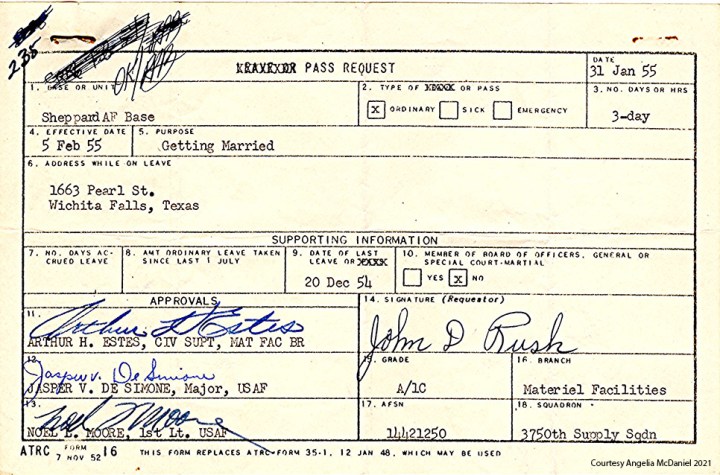 235
OK/
LEAVE OR PASS REQUEST
DATE
31 Jan 55
1. BASE OR UNIT
Sheppard AF Base
2. TYPE OF XXXXX OR PASS
X ORDINARY SICK EMERGENCY
3. NO. DAYS OR HRS
3-day
4. EFFECTIVE DATE
5 Feb 55
5. PURPOSE
Getting Married
6. ADDRESS WHILE ON LEAVE
1663 Pearl St.
Wichita Falls, Texas
SUPPORTING INFORMATION
7. NO. DAYS AC-
CRUED LEAVE
8. AMT ORDINARY LEAVE TAKEN
SINCE LAST 1 JULY
9. DATE OF LAST
LEAVE OR XXXX
20 Dec 54
10. MEMBER OF BOARD OF OFFICERS, GENERAL OR
SPECIAL COURT-MARTIAL
YES X NO
APPROVALS
11.
Arthur H Estes
ARTHUR H. ESTES, CIV SUPT, MAT FAC BR
12.
Jasper V. De Simone
JASPER V. DE SIMONE, Major, USAF
13.
Noel L Moore
NOEL L. MOORE, 1st Lt. USAF
14. SIGNATURE (Requestor)
John D Rush
15. GRADE
A/1C
16. BRANCH
Materiel Facilities
17. AFSN
14421250
18. SQUADRON
3750th Supply Sqdn
ATRC FORM 16
7 NOV 52
THIS FORM REPLACES ATRC-FORM 35-1, 12 JAN 48, WHICH MAY BE USED
Courtesy Angelia McDaniel 2021